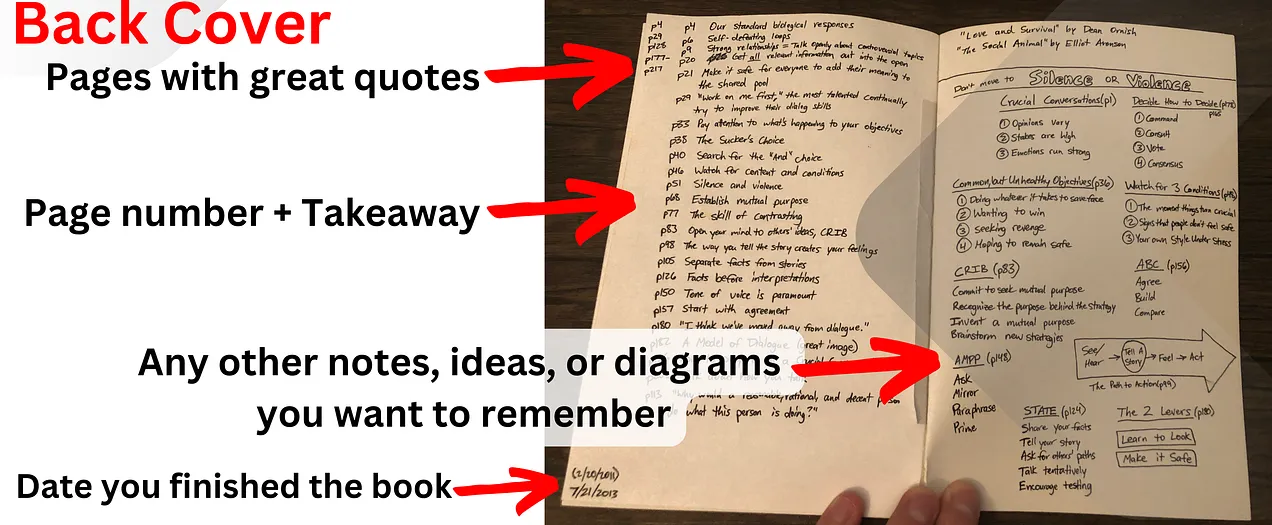 Back Cover
Pages with great quotes
Page number + Takeaway
Any other notes, ideas, or diagrams
you want to remember
Date you finished the book
p4
p29
p128
p177-
p217
p4 Our standard biological responses
p6 Self-defeating loops
p9 Strong relationships = Talk openly about controversial topics
p20 Get all relevant information out into the open
p21 Make it safe for everyone to add their meaning to
the shared pool
p29 "Work on me first," the most talented continually
try to improve their dialog skills
p33 Pay attention to what's happening to your objectives
p38 The Sucker's Choice
p40 Search for the "And" choice
p46 Watch for content and conditions
p51 Silence and violence
p68 Establish mutual purpose
p77 The skill of contrasting
p83 Open your mind to others' ideas, CRIB
p98 The way you tell the story creates your feelings
p105 Separate facts from stories
p126 Facts before interpretations
p150 Tone of voice is paramount
p157 Start with agreement
p180 "I think we've moved away from dialogue."
p182 A Model of Dialogue (great image)
would a reasonable, rational, and decent person
what this person is doing?"
(2/20/2011)
7/21/2013
"Love and Survival" by Dean Ornish
"The Social Animal" by Elliot Aronson
Don't move to Silence or Violence
Crucial Conversations (p1)
① Opinions vary
② Stakes are high
③ Emotions run strong
Decide How to Decide (p178)
p165
① Command
② Consult
③ Vote
④ Consensus
Common, but Unhealthy Objectives (p36)
① Doing whatever it takes to save face
② Wanting to win
③ Seeking revenge
④ Hoping to remain safe
Watch for 3 Conditions
① The moment things turn crucial
② Signs that people don't feel safe
③ Your own Style Under Stress
CRIB (p83)
Commit to seek mutual purpose
Recognize the purpose behind the strategy
Invent a mutual purpose
Brainstorm new strategies
ABC (p156)
Agree
Build
Compare
AMPP (p148)
Ask
Mirror
Paraphrase
Prime
See/
Hear → Tell A Story → Feel → Act
The Path to Action (p99)
STATE (p124)
Share your facts
Tell your story
Ask for others' paths
Talk tentatively
Encourage testing
The 2 Levers (p180)
Learn to Look
Make it Safe